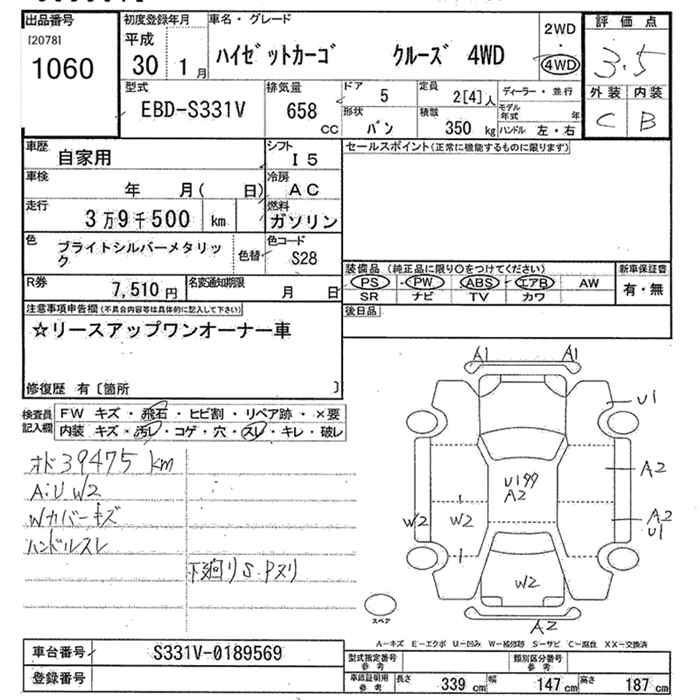 出品番号
[2078]
1060
初度登録年月
平成
30年 1月
車名・グレード
ハイゼットカーゴ クルーズ 4WD
2WD
・
4WD
評価点
3.5
外装 内装
C B
型式
EBD-S331V
排気量
658 cc
ドア 5
形状 バン
定員 2[4]人
積載 350 kg
ディーラー・並行
モデル年式 年
ハンドル 左・右
車歴
自家用
シフト
I5
車検
年 月( 日)
冷房
AC
走行
3万9千500 km
燃料
ガソリン
色
ブライトシルバーメタリック
色替
色コード
S28
R券
7,510円
名変通知期限
月 日
セールスポイント(正常に機能するものに限ります)
装備品 (純正品に限り○をつけてください)
PS PW ABS エアB AW
SR ナビ TV カワ
新車保証書
有・無
後日品
注意事項申告欄(不具合内容等は具体的に記入して下さい)
☆リースアップワンオーナー車
修復歴 有〔箇所 〕
検査員記入欄
FW キズ・飛石・ヒビ割・リペア跡・×要
内装 キズ・汚レ・コゲ・穴・スレ・キレ・破レ
オド39475 km
A:U W2
Wカバーキズ
ハンドルスレ
下廻りS.Pヌリ
A1 A1
U1
A2
U199
A2
W2 W2
A2
U1
W2
A2
スペア
A-キズ E-エクボ U-凹み W-補修跡 S-サビ C-腐食 XX-交換済
車台番号
S331V-0189569
登録番号
型式指定番号
参考
類別区分番号
参考
車庫証明用
参考
長さ 339 cm
幅 147 cm
高さ 187 cm